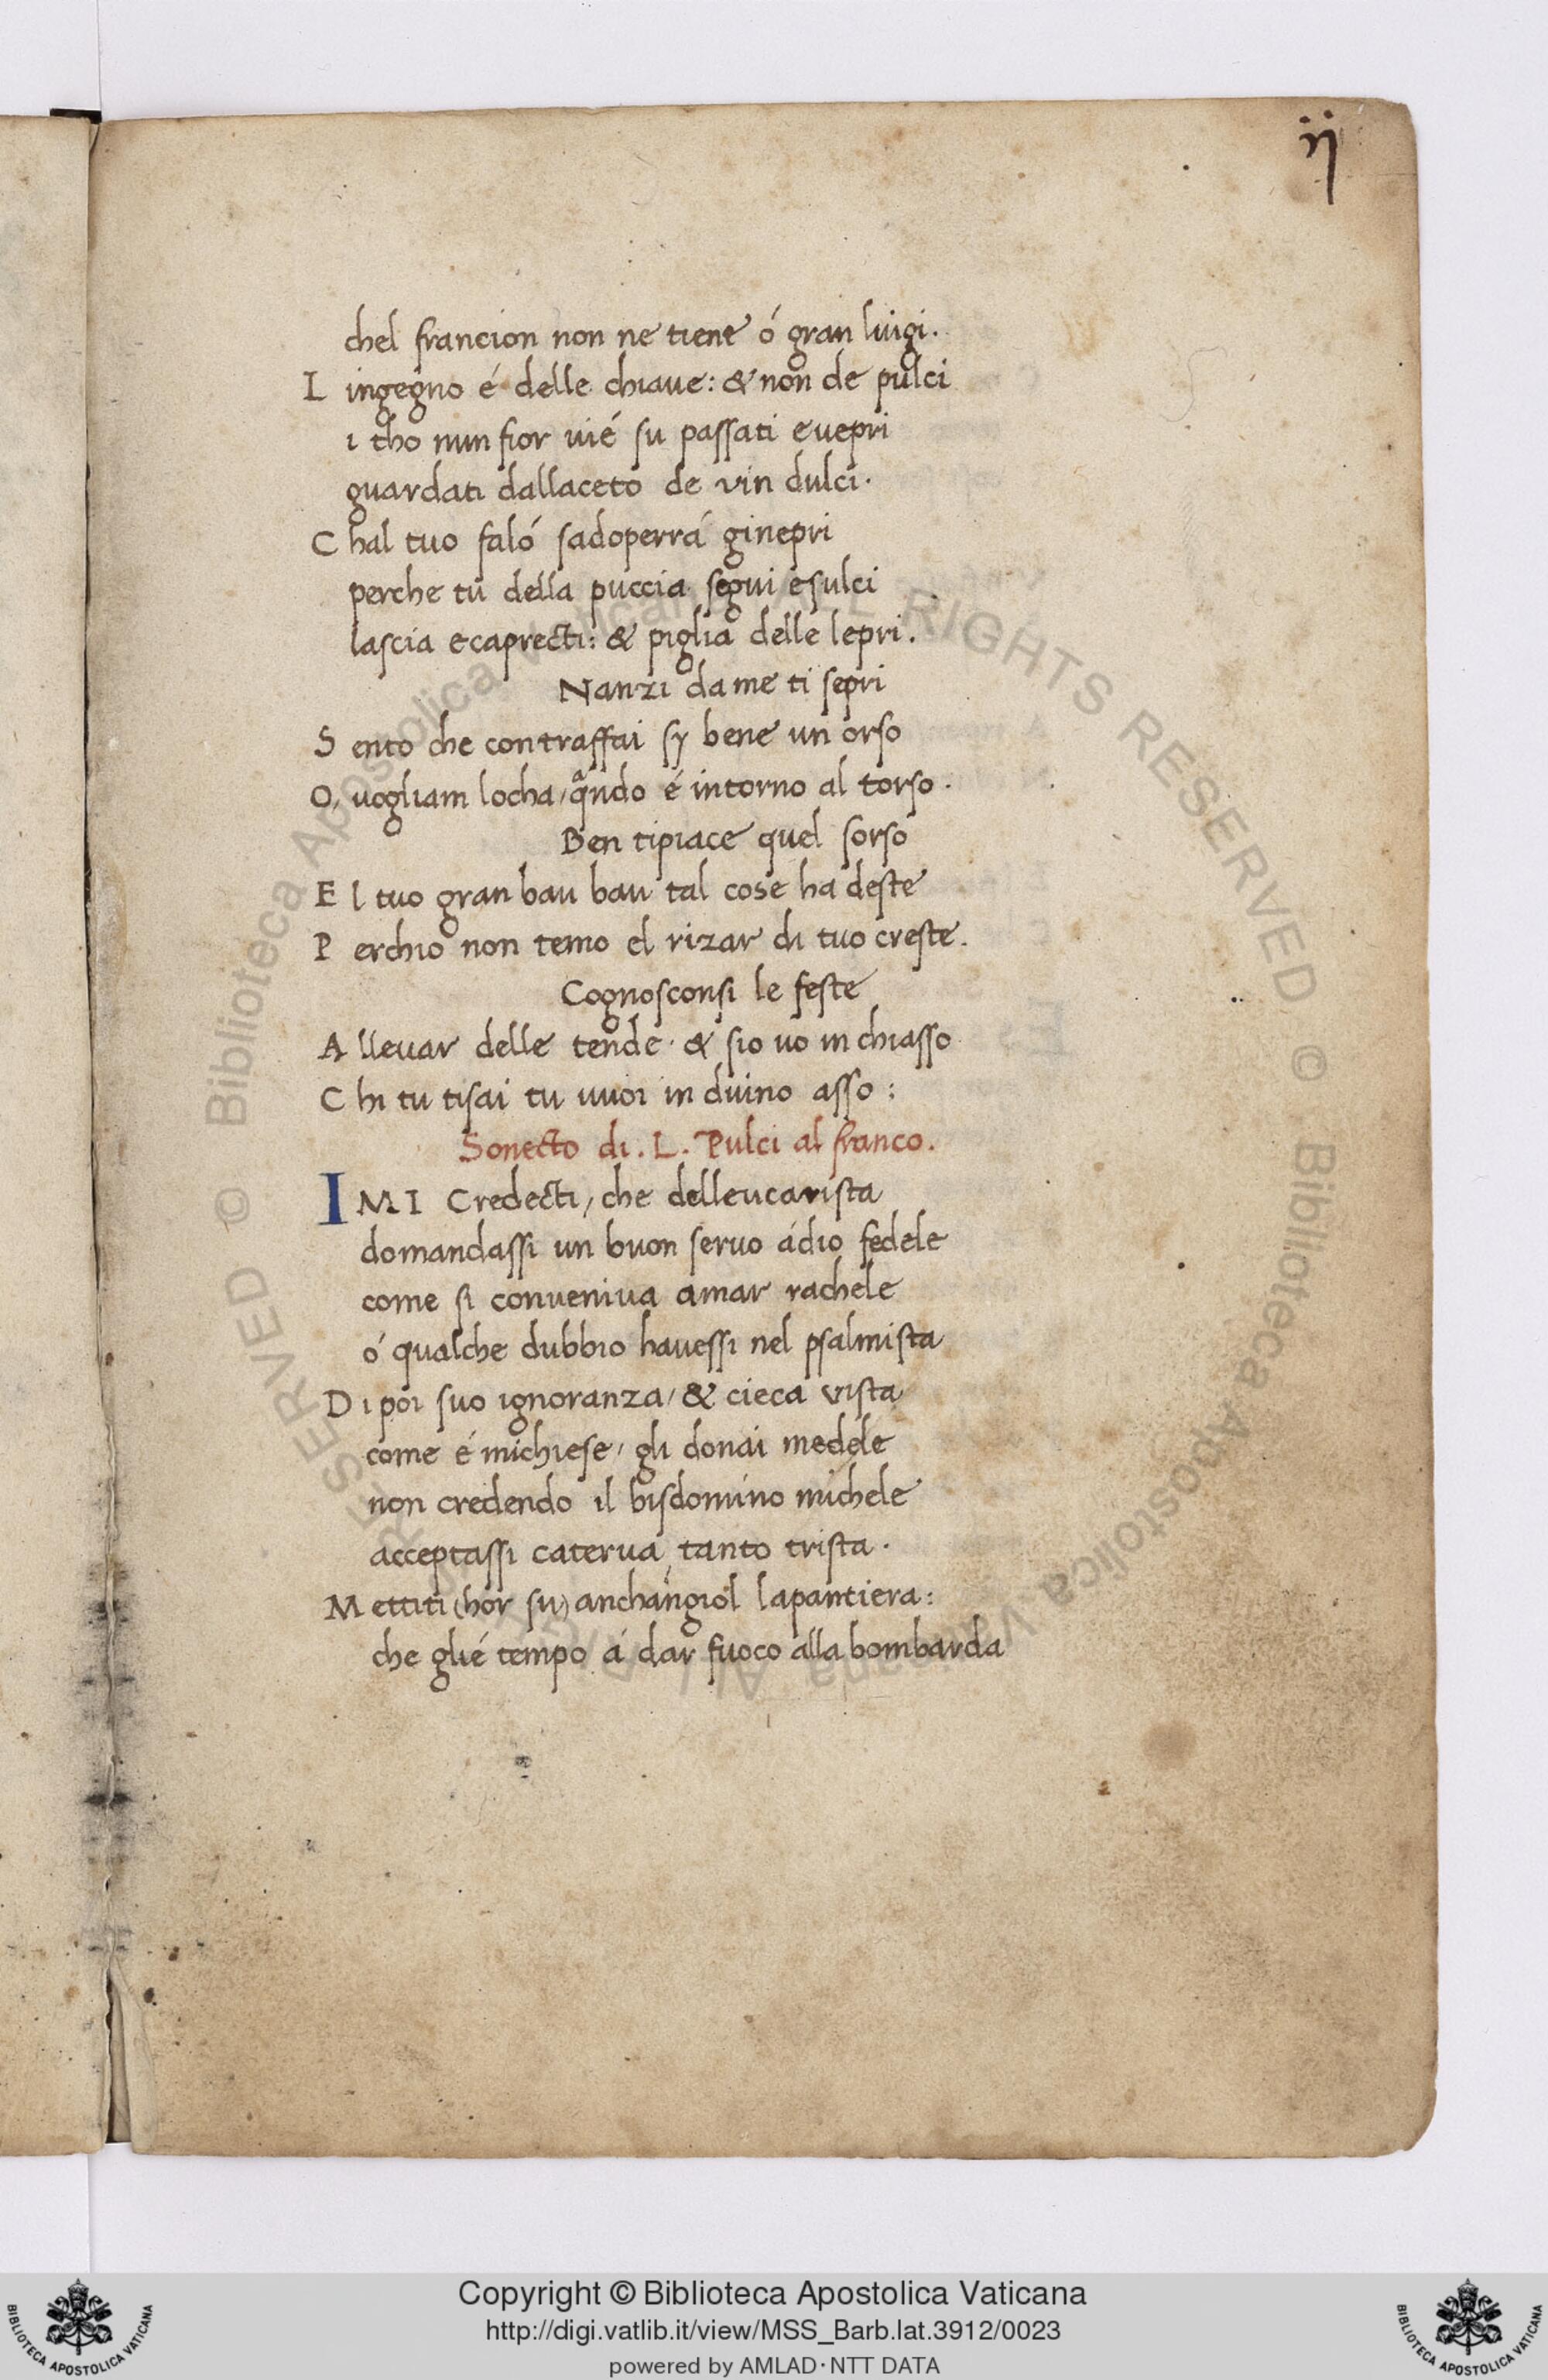 ij
chel francion non ne tiene ó gran luigi.
L ingegno é delle chiaue: & non de pulci
i tho nun fior uié su passati e uepri
guardati dallaceto de vin dulci.
C hal tuo faló sadoperrá ginepri
perche tu della puccia segui e sulci
lascia e caprecti: & piglia delle lepri.
Nanzi da me ti sepri
S ento che contraffai sy bene un orso
O, uogliam locha, qndo é intorno al torso.
Ben ti piace quel sorso
E l tuo gran bau bau tal cose ha deste
P erchio non temo el rizar di tuo creste.
Cognosconsi le feste
A lleuar delle tende. & sio uo in chiasso
C hi tu tisai tu uuoi in duino asso:
Sonecto di. L. Pulci al franco.
I MI Credecti, che delleucarista
domandassi un buon seruo ádio fedele
come si conueniua amar rachele
ó qualche dubbio hauessi nel psalmista
D i poi suo ignoranza, & cieca vista
come é michiese, gli donai medele
non credendo il bisdomino michele
acceptassi caterua tanto trista.
M ettiti (hor su) anchangiol lapantiera:
che glié tempo á dar fuoco alla bombarda
© Biblioteca Apostolica Vaticana ALL RIGHTS RESERVED
© Biblioteca Apostolica Vaticana ALL RIGHTS RESERVED
Copyright © Biblioteca Apostolica Vaticana
http://digi.vatlib.it/view/MSS_Barb.lat.3912/0023
powered by AMLAD·NTT DATA
BIBLIOTECA APOSTOLICA VATICANA
BIBLIOTECA APOSTOLICA VATICANA